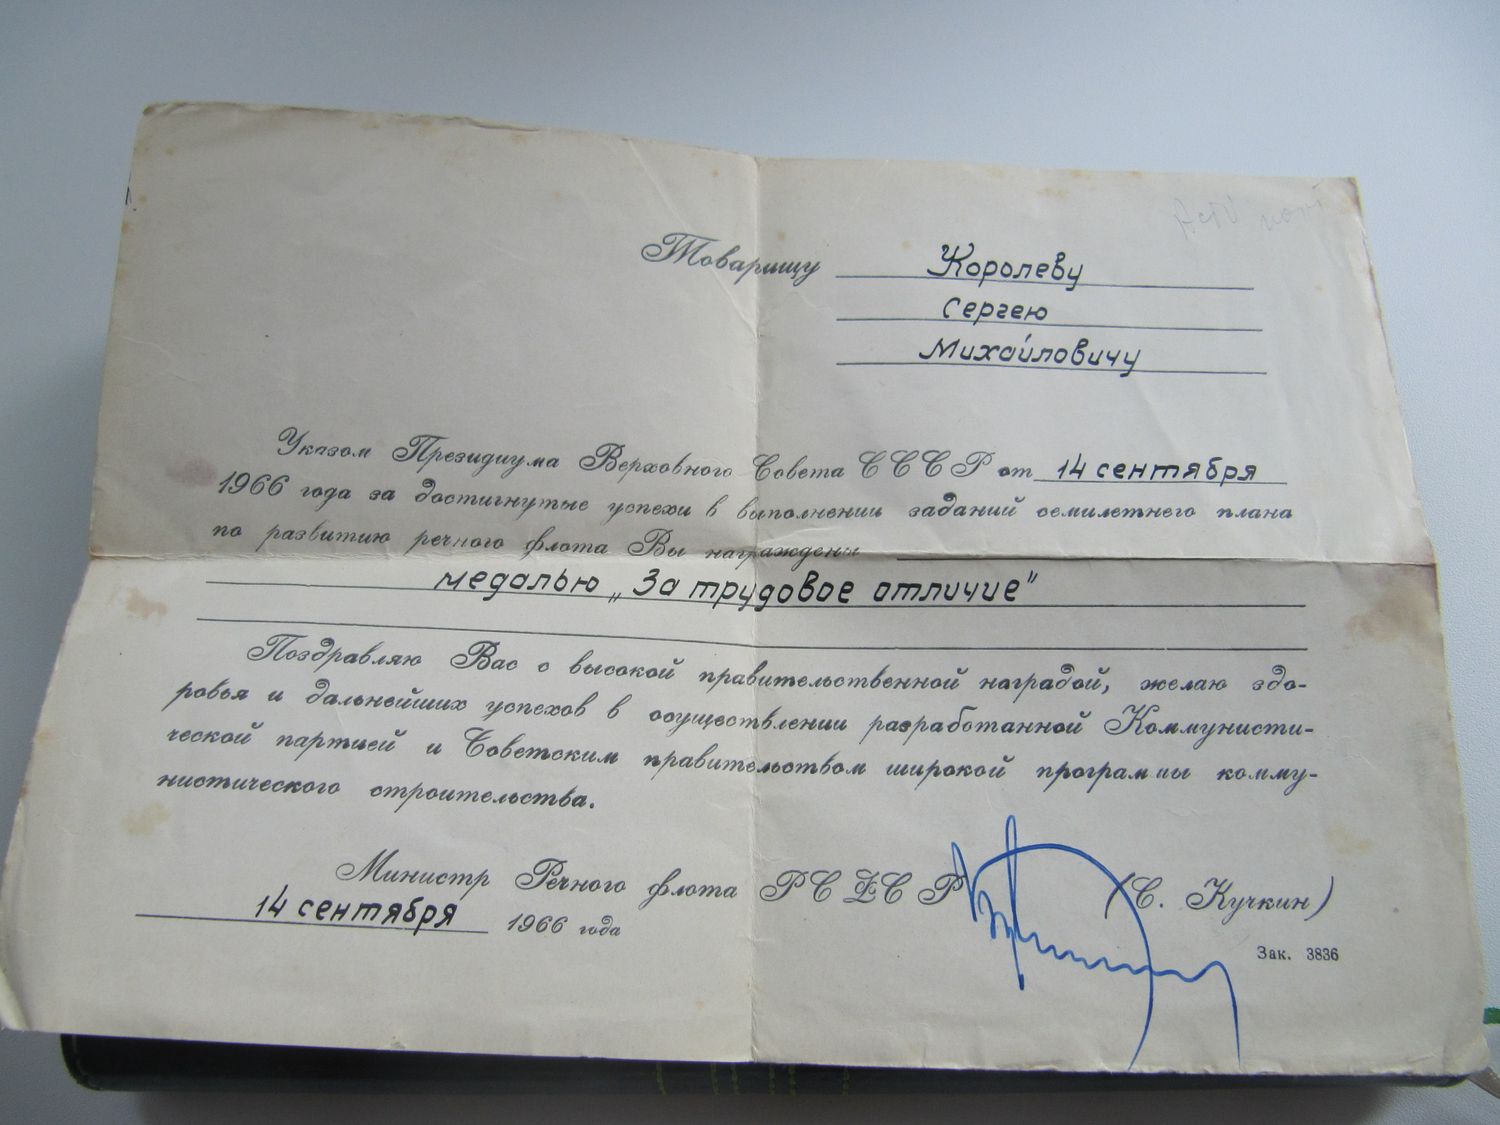 Товарищу Королеву
Сергею
Михайловичу
Указом Президиума Верховного Совета СССР от 14 сентября
1966 года за достигнутые успехи в выполнении заданий семилетнего плана
по развитию речного флота Вы награждены
медалью „За трудовое отличие"
Поздравляю Вас с высокой правительственной наградой, желаю здо-
ровья и дальнейших успехов в осуществлении разработанной Коммунисти-
ческой партией и Советским правительством широкой программы комму-
нистического строительства.
Министр Речного флота РСФСР (С. Кучкин)
14 сентября 1966 года
Зак. 3836